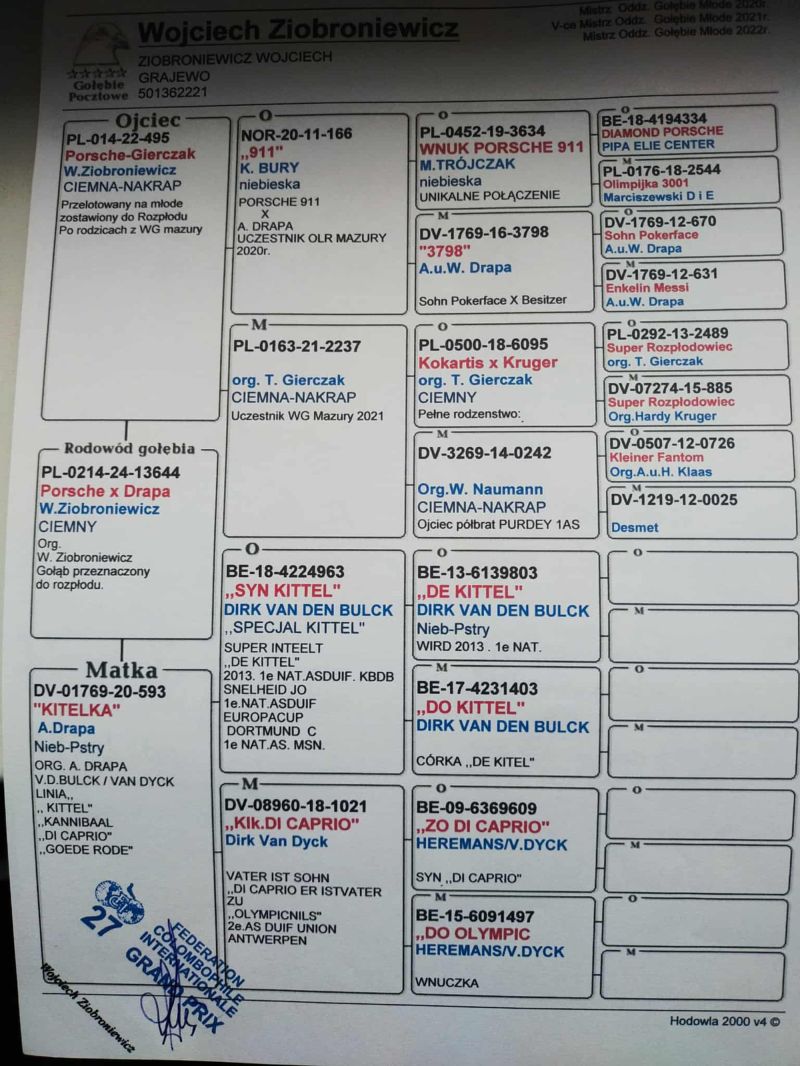 Wojciech Ziobroniewicz
ZIOBRONIEWICZ WOJCIECH
GRAJEWO
501362221
Gołębie
Pocztowe
Mistrz Oddz. Gołębie Młode 2020r.
V-ce Mistrz Oddz. Gołębie Młode 2021r.
Mistrz Oddz. Gołębie Młode 2022r.
Ojciec
PL-014-22-495
Porsche-Gierczak
W.Ziobroniewicz
CIEMNA-NAKRAP
Przelotowany na młode
zostawiony do Rozpłodu
Po rodzicach z WG mazury
Rodowód gołębia
PL-0214-24-13644
Porsche x Drapa
W.Ziobroniewicz
CIEMNY
Org.
W. Ziobroniewicz
Gołąb przeznaczony
do rozpłodu.
Matka
DV-01769-20-593
"KITELKA"
A.Drapa
Nieb-Pstry
ORG. A. DRAPA
V.D.BULCK / VAN DYCK
LINIA,,
,, KITTEL"
,,KANNIBAAL
,,DI CAPRIO"
,,GOEDE RODE"
O
NOR-20-11-166
,,911"
K. BURY
niebieska
PORSCHE 911
X
A. DRAPA
UCZESTNIK OLR MAZURY
2020r.
M
PL-0163-21-2237
org. T. Gierczak
CIEMNA-NAKRAP
Uczestnik WG Mazury 2021
O
BE-18-4224963
,,SYN KITTEL"
DIRK VAN DEN BULCK
,,SPECJAL KITTEL"
SUPER INTEELT
,,DE KITTEL"
2013. 1e NAT.ASDUIF. KBDB
SNELHEID JO
1e.NAT.ASDUIF
EUROPACUP
DORTMUND C
1e NAT.AS. MSN.
M
DV-08960-18-1021
,,Klk.DI CAPRIO"
Dirk Van Dyck
VATER IST SOHN
,,DI CAPRIO ER ISTVATER
ZU
,,OLYMPICNILS"
2e.AS DUIF UNION
ANTWERPEN
O
PL-0452-19-3634
WNUK PORSCHE 911
M.TRÓJCZAK
niebieska
UNIKALNE POŁĄCZENIE
M
DV-1769-16-3798
"3798"
A.u.W. Drapa
Sohn Pokerface X Besitzer
O
PL-0500-18-6095
Kokartis x Kruger
org. T. Gierczak
CIEMNY
Pełne rodzenstwo:
M
DV-3269-14-0242
Org.W. Naumann
CIEMNA-NAKRAP
Ojciec półbrat PURDEY 1AS
O
BE-13-6139803
,,DE KITTEL"
DIRK VAN DEN BULCK
Nieb-Pstry
WIRD 2013 . 1e NAT.
M
BE-17-4231403
,,DO KITTEL"
DIRK VAN DEN BULCK
CÓRKA ,,DE KITEL"
O
BE-09-6369609
,,ZO DI CAPRIO"
HEREMANS/V.DYCK
SYN ,,DI CAPRIO"
M
BE-15-6091497
,,DO OLYMPIC
HEREMANS/V.DYCK
WNUCZKA
O
BE-18-4194334
DIAMOND PORSCHE
PIPA ELIE CENTER
M
PL-0176-18-2544
Olimpijka 3001
Marciszewski D i E
O
DV-1769-12-670
Sohn Pokerface
A.u.W. Drapa
M
DV-1769-12-631
Enkelin Messi
A.u.W. Drapa
O
PL-0292-13-2489
Super Rozpłodowiec
org. T. Gierczak
M
DV-07274-15-885
Super Rozpłodowiec
Org.Hardy Kruger
O
DV-0507-12-0726
Kleiner Fantom
Org.A.u.H. Klaas
M
DV-1219-12-0025
Desmet
O
M
O
M
O
M
O
M
27
FEDERATION
COLOMBOPHILE
INTERNATIONALE
GRAND PRIX
Wojciech Ziobroniewicz
Hodowla 2000 v4 ©